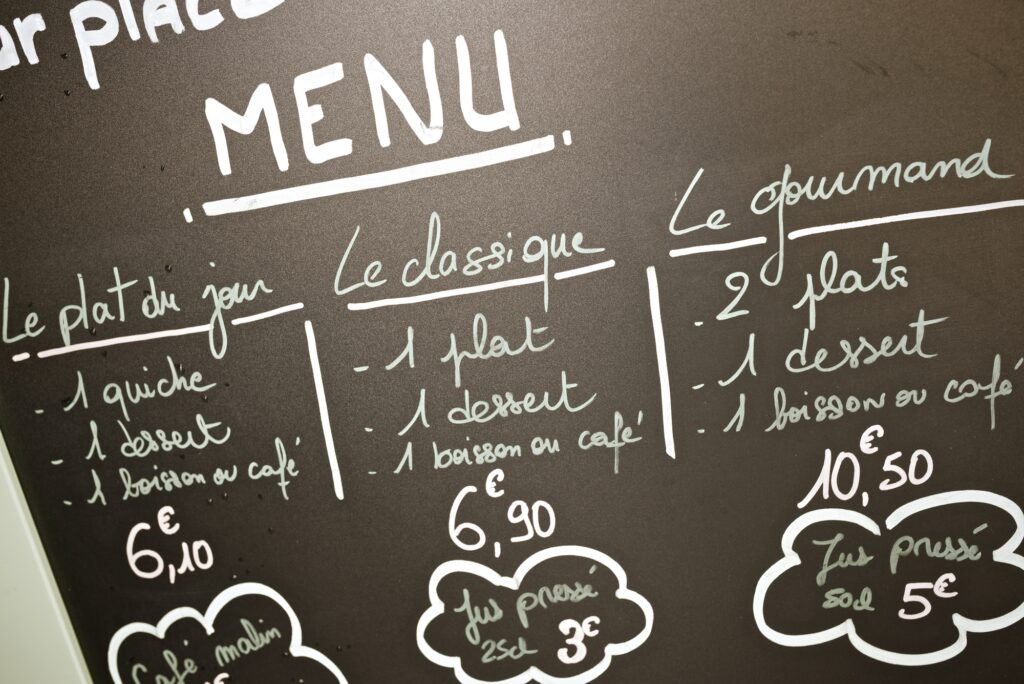 ur place
MENU
Le plat du jour
- 1 quiche
- 1 dessert
- 1 boisson ou café
6€,10
Le classique
- 1 plat
- 1 dessert
- 1 boisson ou café
6€,90
Le gourmand
- 2 plats
- 1 dessert
- 1 boisson ou café
10€,50
Café malin
Jus pressé
25cl 3€
Jus pressé
50cl 5€